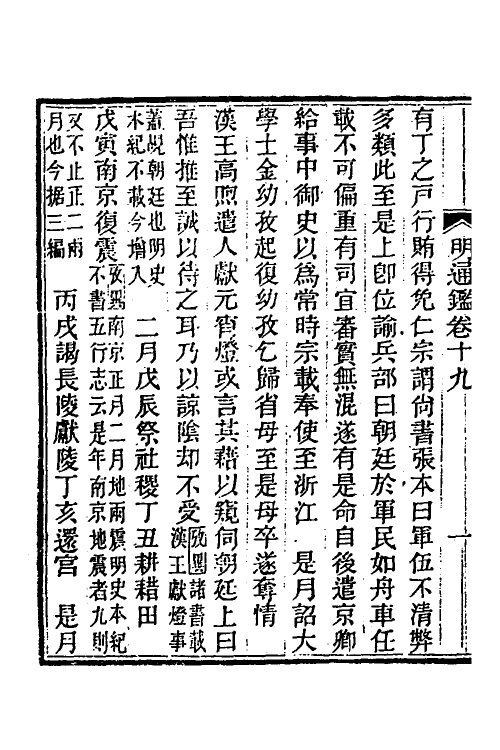 明通鑑卷十九
一
有丁之戸行賄得免仁宗謂尚書張本曰軍伍不清弊
多類此至是上卽位諭兵部曰朝廷於軍民如舟車任
載不可偏重有司宜審實無混遂有是命自後遣京卿
給事中御史以爲常時宗載奉使至浙江　是月詔大
學士金幼孜起復幼孜乞歸省母至是母卒遂奪情
漢王高煦遣人獻元宵燈或言其藉以窺伺朝廷上曰
吾惟推至誠以待之耳乃以諒陰却不受攷異諸書載漢王獻燈事
蓋覘朝廷也明史本紀不載今增入　二月戊辰祭社稷丁丑耕耤田
戊寅南京復震攷異南京正月二月地兩震明史本紀不書五行志云是年南京地震者九則
又不止正二兩月也今据三編　丙戌謁長陵獻陵丁亥還宮　是月